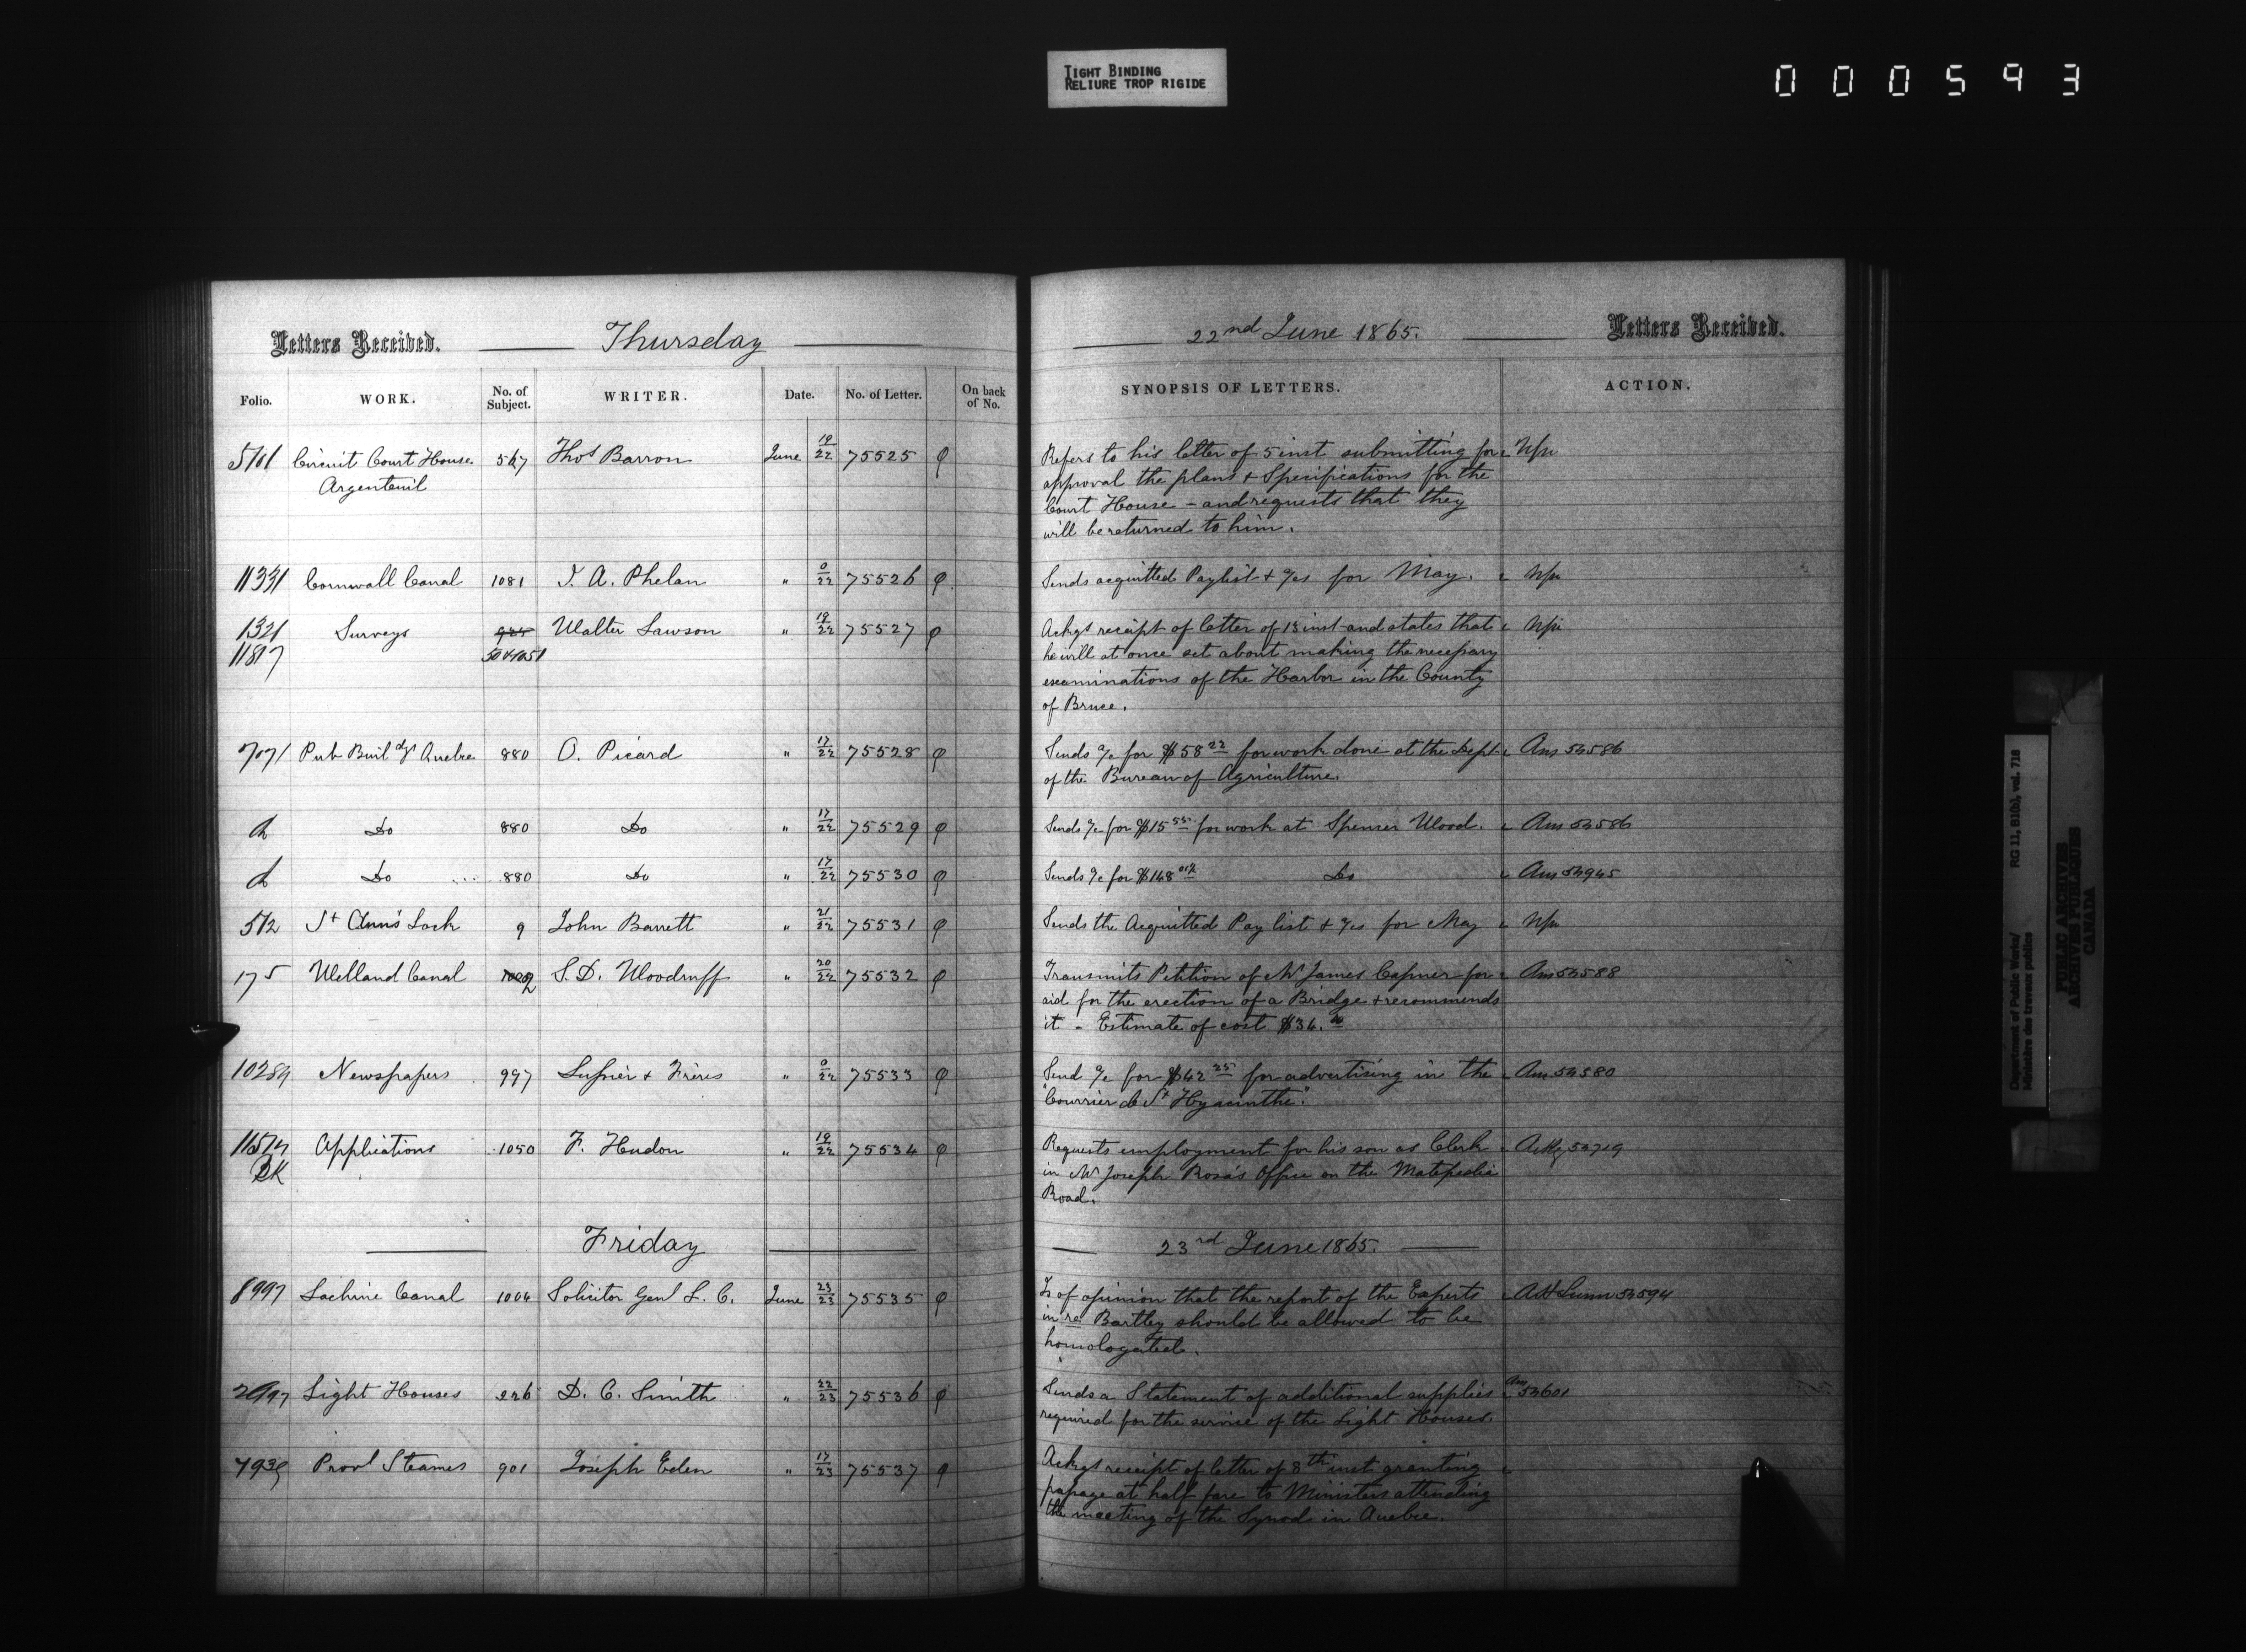 TIGHT BINDING
RELIURE TROP RIGIDE
000593
Letters Received. Thursday 22nd June 1865. Letters Received.
Folio. WORK. No. of Subject. WRITER. Date. No. of Letter. On back of No. SYNOPSIS OF LETTERS. ACTION.
5101 Circuit Court House 567 Thos Barron June 19/22 75525 Refers to his letter of 5 inst submitting for
Argenteuil approval the plans + Specifications for the
Court House - and requests that they
will be returned to him.
11331 Cornwall Canal 1081 J. A. Phelan " 0/22 75526 Sends acquitted Paylist + %s for May.
1321 Surveys Walter Lawson " 19/22 75527 Ackgs receipt of letter of 13 inst and states that
11817 50+1051 he will at once set about making the necessary
examinations of the Harbor in the County
of Bruce.
7071 Pub Buildgs Quebec 880 O. Picard " 17/22 75528 Sends %c for $58 22 for work done at the Dept Ans 54586
of the Bureau of Agriculture.
do Do 880 Do " 17/22 75529 Sends %c for $15 55 for work at Spencer Wood. Ans 54586
do Do 880 Do " 17/22 75530 Sends %c for $148 01½ Do Ans 54945
512 St Ann's Lock 9 John Barrett " 21/22 75531 Sends the Acquitted Pay list + %s for May
175 Welland Canal 2 S. D. Woodruff " 20/22 75532 Transmits Petition of Mr James Capner for Ans 54588
aid for the erection of a Bridge + recommends
it - Estimate of cost $36.
10284 Newspapers 997 Lussier + Frères " 0/22 75533 Send %c for $42 25 for advertising in the Ans 54580
"Courrier de St Hyacinthe".
11574 Applications 1050 F. Hudon " 19/22 75534 Requests employment for his son as Clerk Ackg 54719
in Mr Joseph Rosa's Office on the Matapedia
Road.
Friday 23rd June 1865.
8997 Lachine Canal 1004 Solicitor Genl L. C. June 23/23 75535 Is of opinion that the report of the Experts 54594
in re Bartley should be allowed to be
homologated.
2997 Light Houses 226 D. C. Smith " 22/23 75536 Sends a Statement of additional supplies Ans 54601
required for the service of the Light Houses.
7939 Provl Steamers 901 Joseph Eden " 17/23 75537 Ackgs receipt of letter of 8th inst granting
passage at half fare to Ministers attending
the meeting of the Synod in Quebec.
Department of Public Works/ RG 11, B1(b), vol. 718
Ministère des travaux publics
PUBLIC ARCHIVES
ARCHIVES PUBLIQUES
CANADA